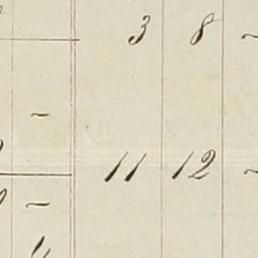 3 8 -
-
11 12 -
-